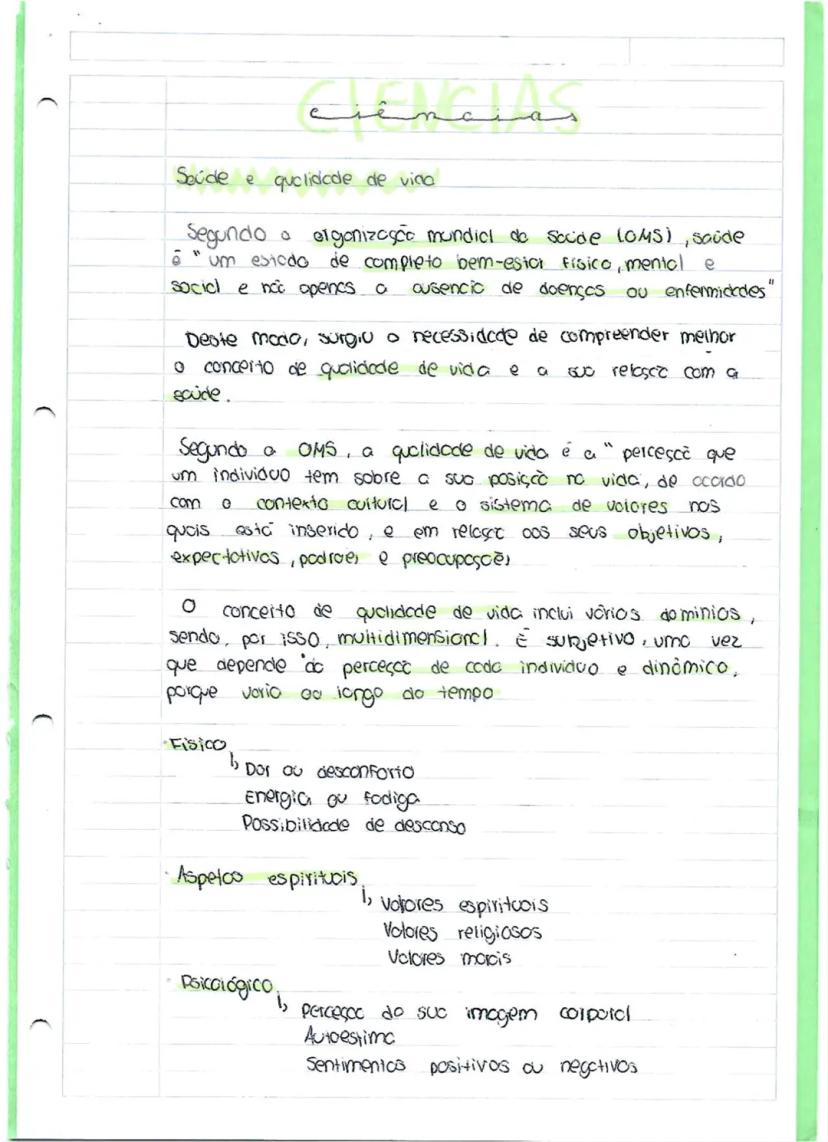 CIENCIAS
ciências
Saúde e qualidade de vida
Segundo a organização mundial da saúde (OMS), saúde
é "um estado de completo bem-estar físico, mental e
social e não apenas a ausencia de doenças ou enfermidades"
Deste modo, surgiu a necessidade de compreender melhor
o conceito de qualidade de vida e a sua relação com a
saúde.
Segundo a OMS, a qualidade de vida é a "perceção que
um individuo tem sobre a sua posição na vida, de acordo
com o contexto cultural e o sistema de valores nos
quais está inserido, e em relação aos seus objetivos,
expectativas, padrões e preocupações
O conceito de qualidade de vida inclui vários dominios,
sendo, por isso, multidimensional. É subjetivo, uma vez
que depende da perceção de cada individuo e dinâmico,
porque varia ao longo do tempo
· Físico
↳ Dor ou desconforto
Energia ou fadiga
Possibilidade de descanso
· Aspetos espirituais
↳ Valores espirituais
Valores religiosos
Valores morais
· Psicológico
↳ Perceção da sua imagem corporal
Autoestima
Sentimentos positivos ou negativos